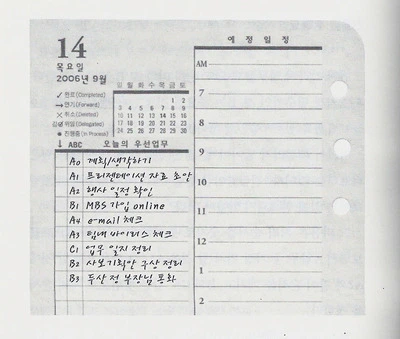 14
목요일
2006년 9월
일 월 화 수 목 금 토
1 2
3 4 5 6 7 8 9
10 11 12 13 14 15 16
17 18 19 20 21 22 23
24 25 26 27 28 29 30
✓ 완료 (Completed)
→ 연기 (Forward)
× 취소 (Deleted)
위임 (Delegated)
● 진행중 (In Process)
↓ ABC 오늘의 우선업무
A0 계획/생각하기
A1 프리젠테이션 자료 초안
A2 행사 일정 확인
B1 MBS 가입 online
A4 e-mail 체크
A3 팀내 바이러스 체크
C1 업무 일지 정리
B2 사보기획안 구상 정리
B3 두산 정 부장님 통화
예정일정
AM
7
8
9
10
11
12
1
2